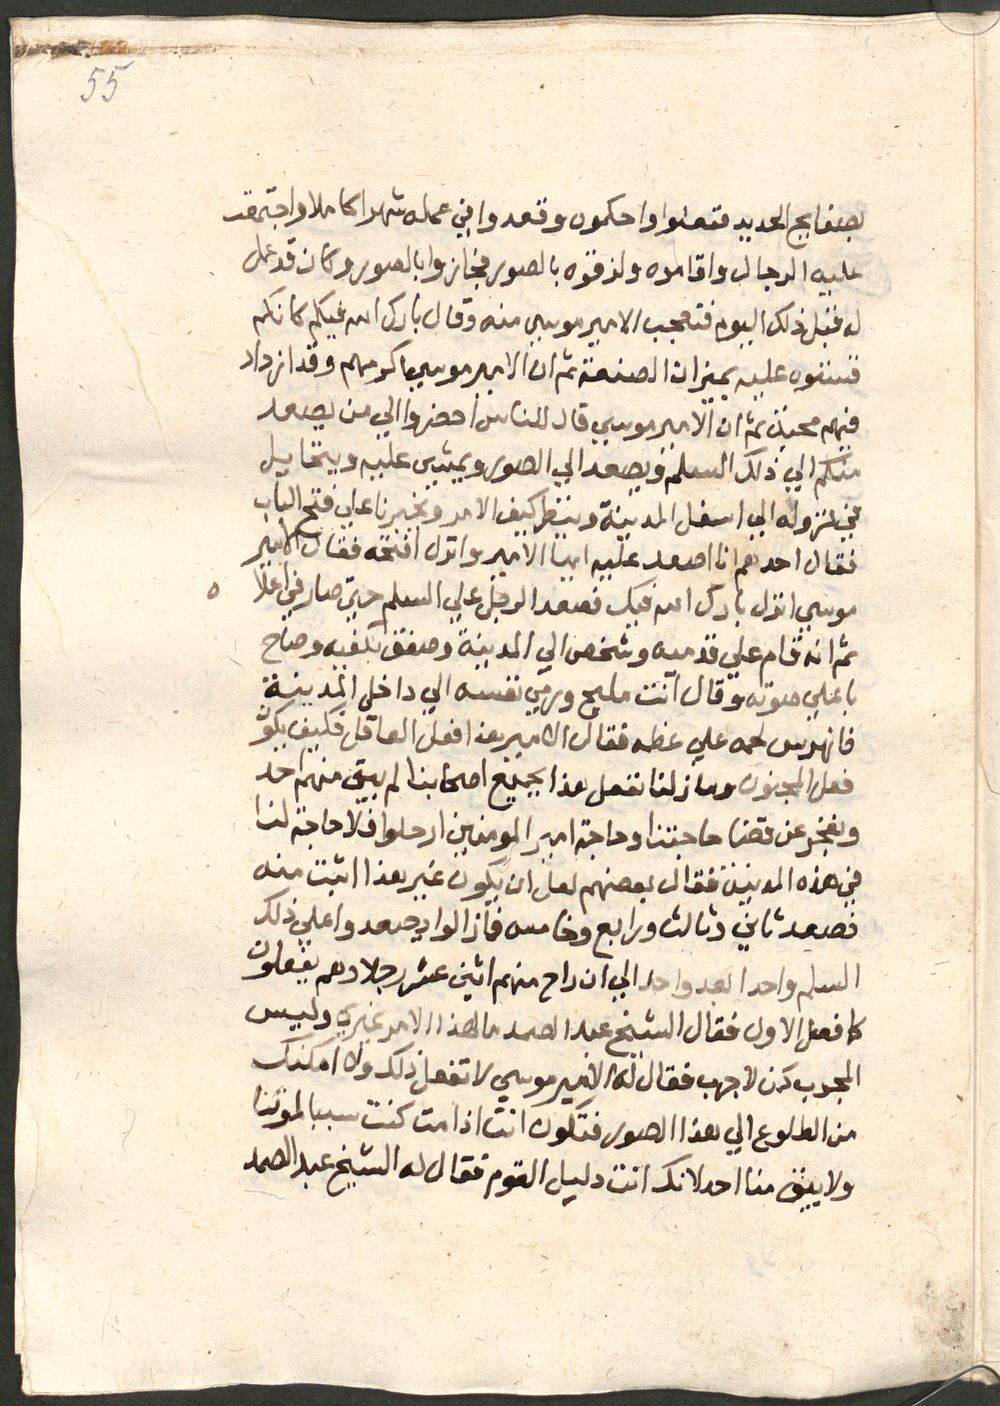 55
بصفايح الحديد فتعبوا واحكموه وقعدوا في عمله شهرا كاملا واجتمعت
عليه الرجال واقاموه ولزقوه بالصور فجازوا بالصور وكان قد عمل
له قبل ذلك اليوم فتعجب الامير موسي منه وقال بارك الله فيكم كانكم
قستوه عليه بميزان الصنعة ثم ان الامير موسي اكرمهم وقد ازداد
فيهم محبة ثم ان الامير موسي قال للناس احضروا الي من يصعد
منكم الي ذلك السلم ويصعد الي الصور ويمشي عليه ويتحايل
في نزوله الي اسفل المدينة وينظر كيف الامر ويخبرنا علي فتح الباب
فقال احدهم انا اصعد عليه ايها الامير وانزل افتحه فقال الامير
موسي انزل بارك الله فيك فصعد الرجل علي السلم حتي صار في اعلا ه
ثم انه قام علي قدميه وشخص الي المدينة وصفق بكفيه وصاح
باعلي صوته وقال انت مليح ورمي نفسه الي داخل المدينة
فانهرس لحمه علي عظمه فقال الامير هذا فعل العاقل فكيف يكون
فعل المجنون وما زلنا نفعل هذا بجميع اصحابنا لم يبقي منهم حد
ونعجز عن قضا حاجتنا وحاجة امير المومنين ارحلوا فلا حاجة لنا
في هذه المدينة فقال بعضهم لعل ان يكون غير هذا اثبت منه
فصعد ثاني وثالث ورابع وخامس فمازالوا يصعدوا علي ذلك
السلم واحدا بعد واحد الي ان راح منهم اثني عشر رجلا وهم يفعلون
كما فعل الاول فقال الشيخ عبد الصمد ما لهذا الامر غيري وليس
المجرب كمن لا جرب فقال له الامير موسي لا تفعل ذلك ولا امكنك
من الطلوع الي هذا الصور فتكون انت اذا مت كنت سببا لموتنا
ولا يبقي منا احد لانك انت دليل القوم فقال له الشيخ عبد الصمد